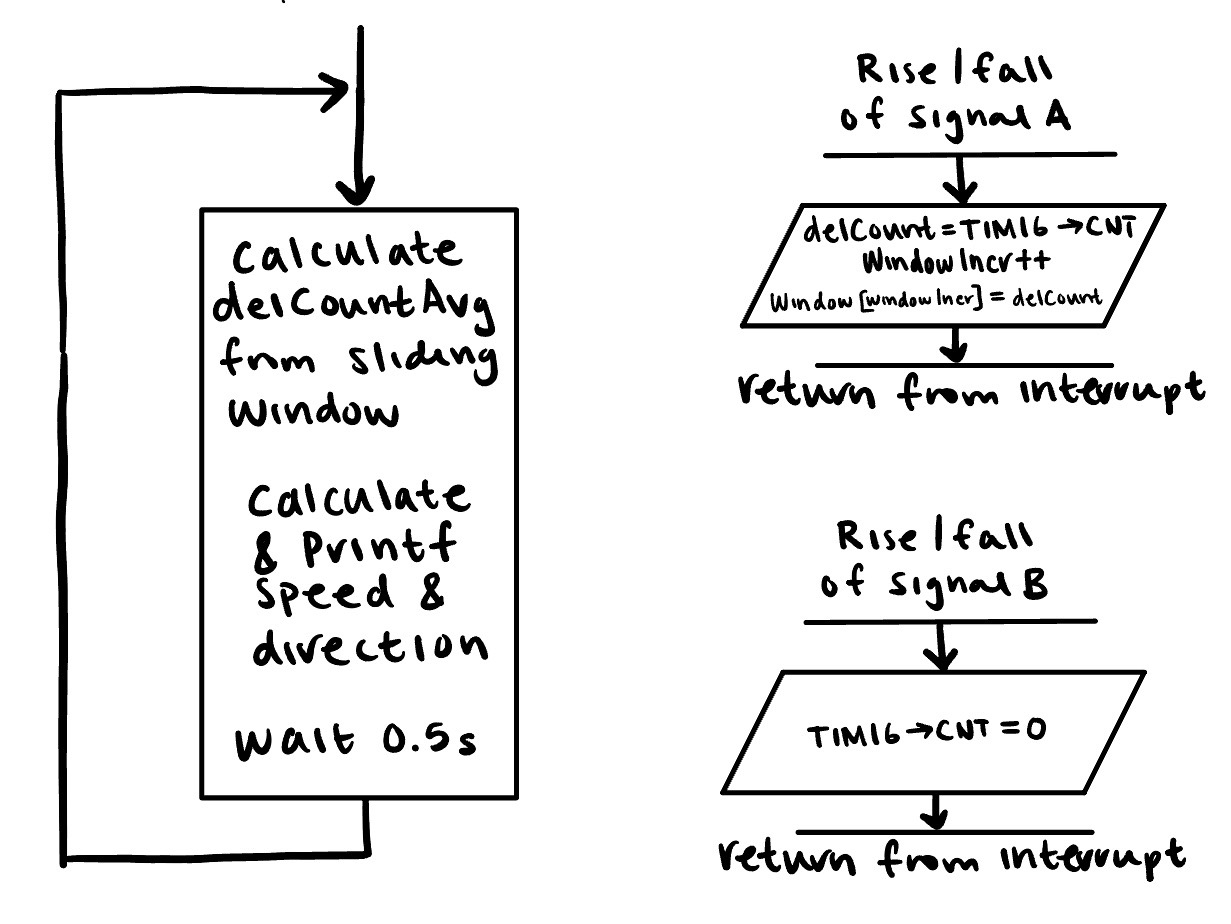 Calculate
delCountAvg
from sliding
window
Calculate
& Printf
speed &
direction
wait 0.5s
Rise/fall
of signal A
delCount = TIM16 → CNT
Window Incr++
Window [window Incr] = delCount
return from interrupt
Rise/fall
of signal B
TIM16 → CNT = 0
return from interrupt